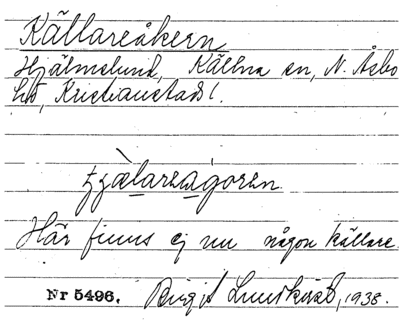 Källareåkern
Hjälmslund, Källna sn, N. Åsbo
hd, Kristianstads l.
Här finns ej nu någon källare.
Nr 5496. Birgit Lundkvist, 1938.